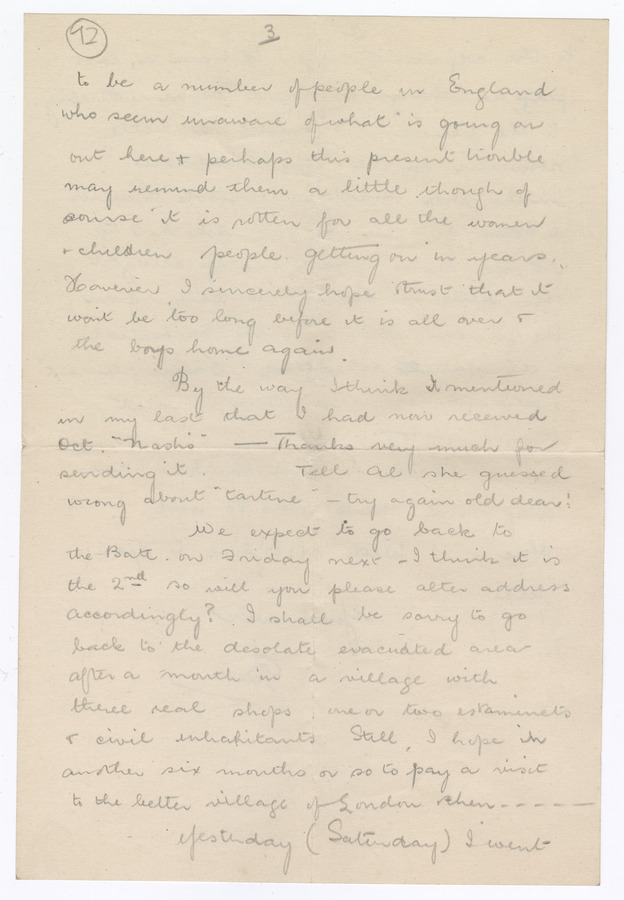 92
3
to be a number of people in England
who seem unaware of what is going on
out here & perhaps this present trouble
may remind them a little, though of
course it is rotten for all the women
& children people getting on in years.
However I sincerely hope & trust that it
wont be too long before it is all over &
the boys home again.
By the way I think I mentioned
in my last that I had now received
Oct. "Nash's" — Thanks very much for
sending it. Tell Al she guessed
wrong about "tartine" – try again old dear!
We expect to go back to
the Batt. on Friday next – I think it is
the 2nd so will you please alter address
accordingly? I shall be sorry to go
back to the desolate evacuated area
after a month in a village with
three real shops, one or two estaminets
& civil inhabitants Still, I hope in
another six months or so to pay a visit
to the better village of London then - - - - -
Yesterday (Saturday) I went